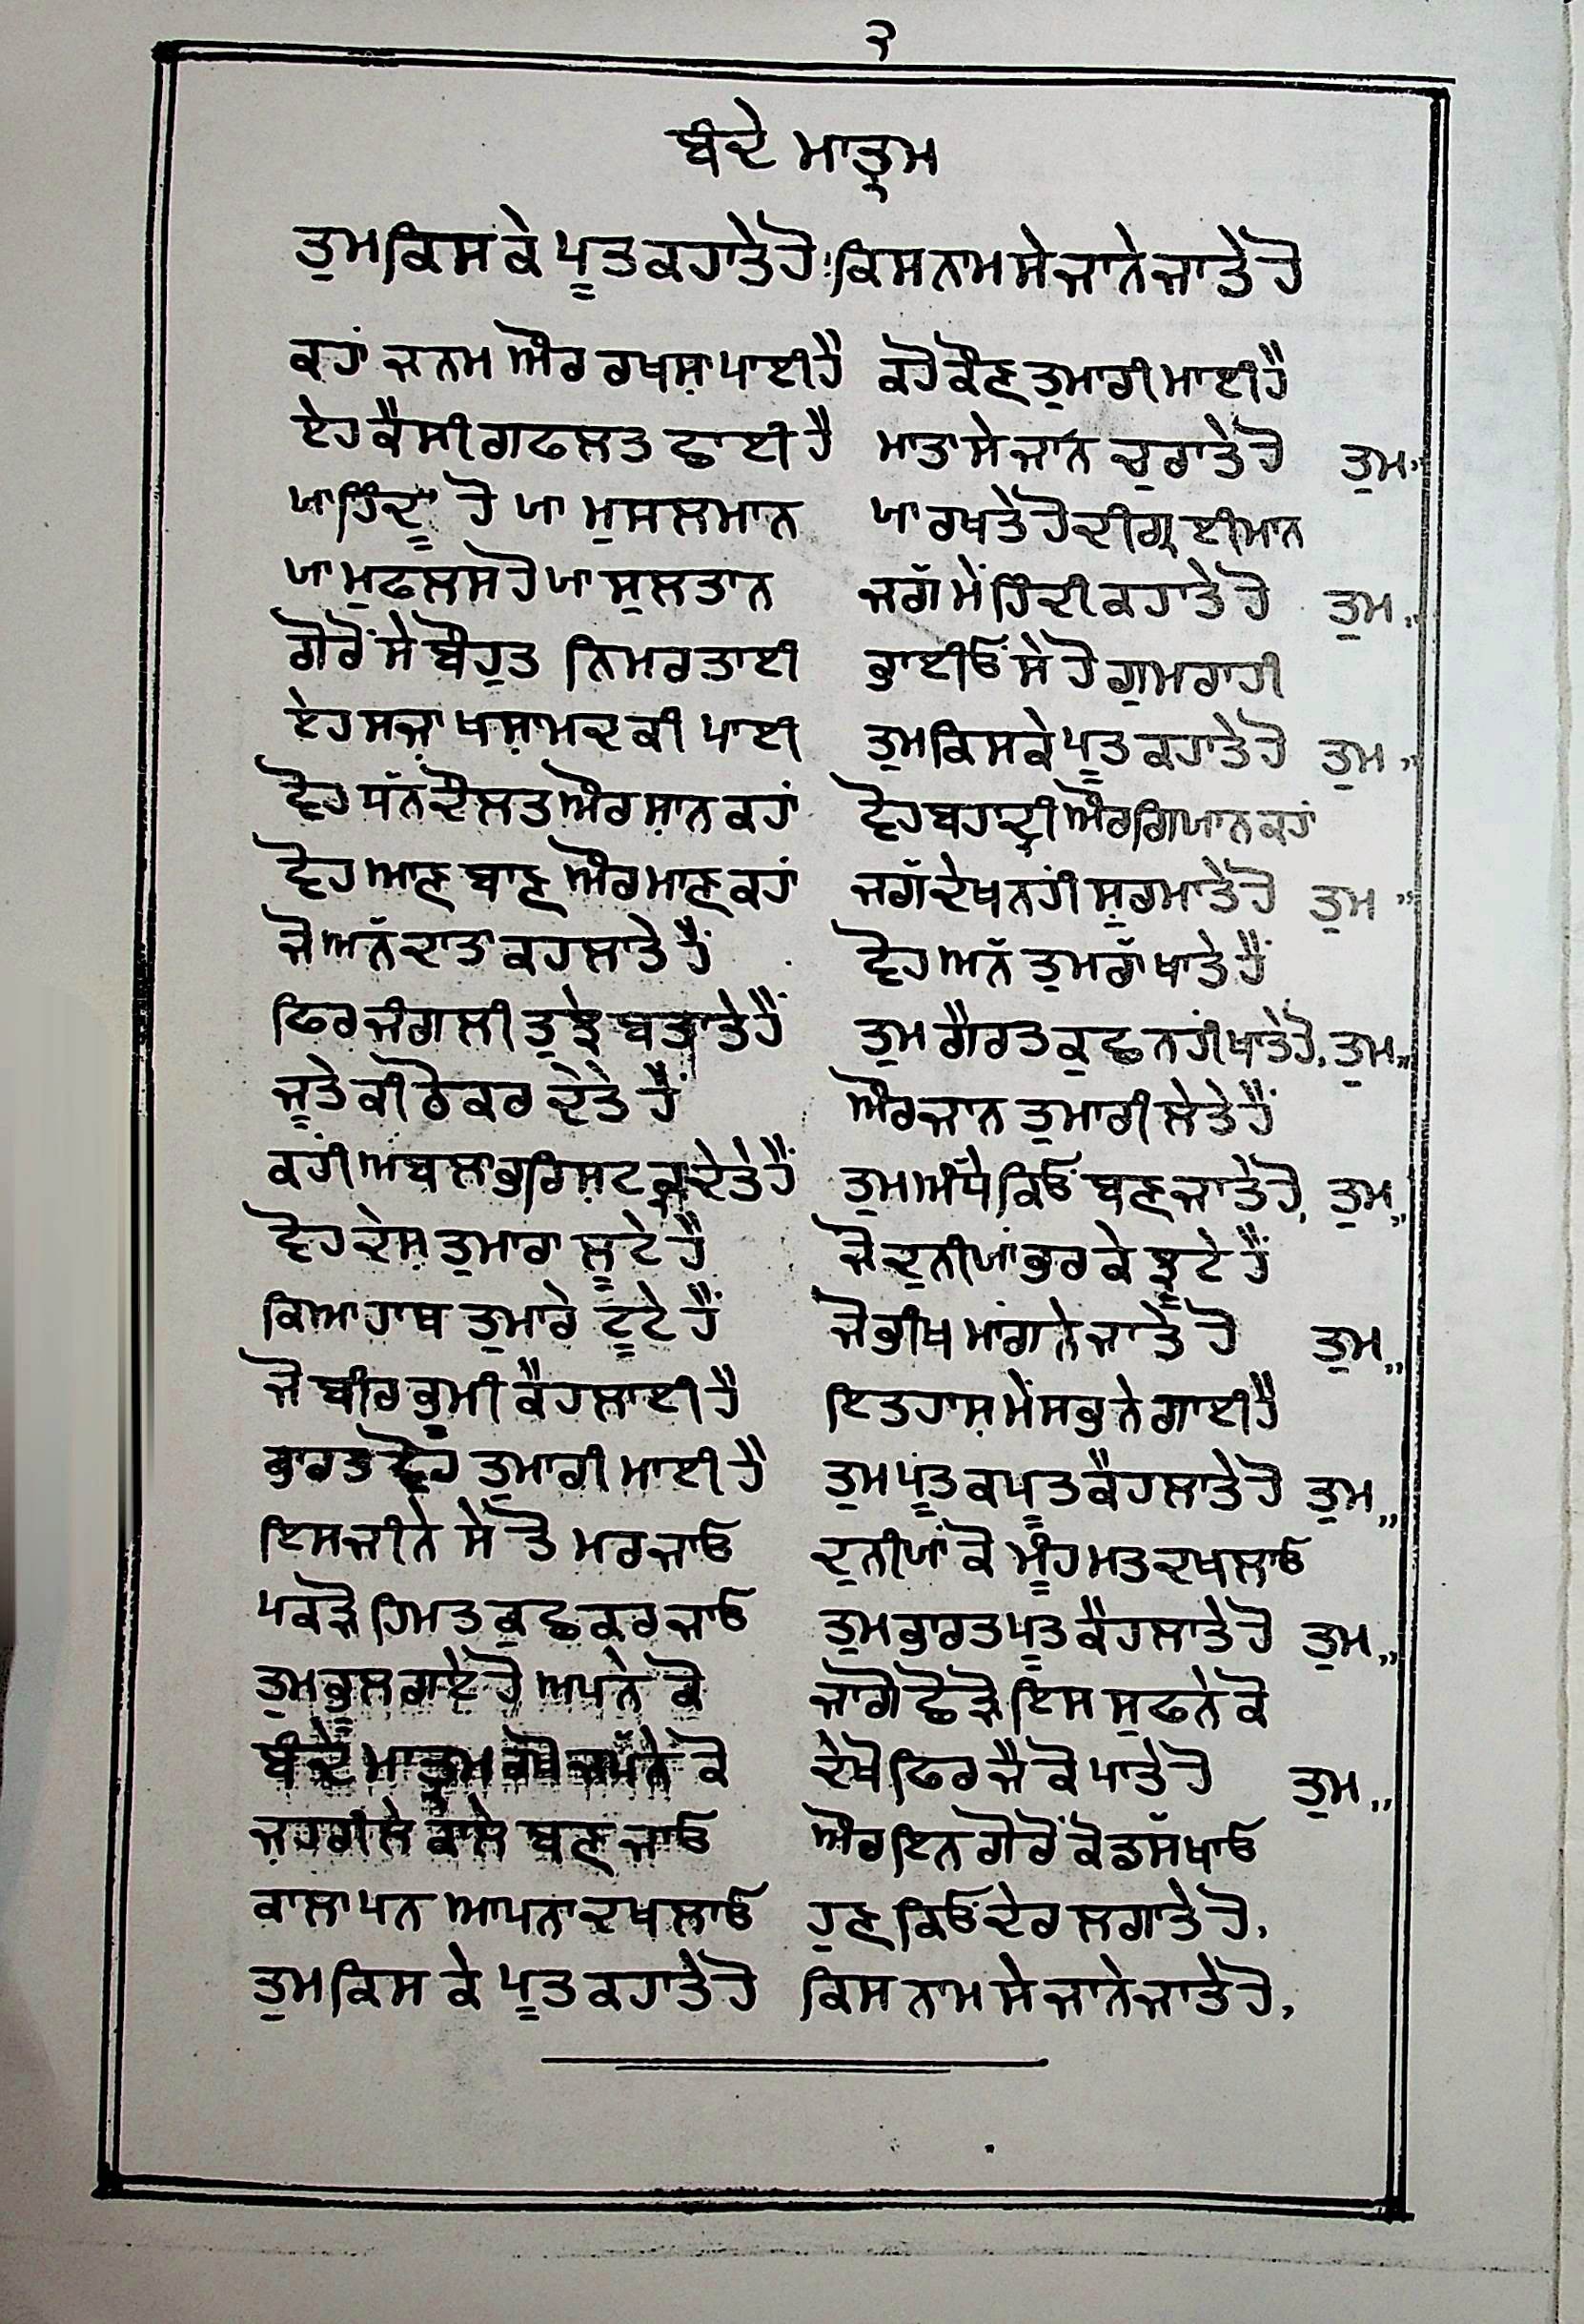 ੨
ਬੰਦੇ ਮਾਤ੍ਰਮ
ਤੁਮ ਕਿਸ ਕੇ ਪੂਤ ਕਹਾਤੇ ਹੋ: ਕਿਸ ਨਾਮ ਸੇ ਜਾਨੇ ਜਾਤੇ ਹੋ
ਕਹਾਂ ਜਨਮ ਔਰ ਰਖਸ਼ਾ ਪਾਈ ਹੈ ਕਹੋ ਕੌਣ ਤੁਮਾਰੀ ਮਾਈ ਹੈ
ਏਹ ਕੈਸੀ ਗਫਲਤ ਛਾਈ ਹੈ ਮਾਤਾ ਸੇ ਜਾਨ ਚੁਰਾਤੇ ਹੋ ਤੁਮ,,
ਯਾ ਹਿੰਦੂ ਹੋ ਯਾ ਮੁਸਲਮਾਨ ਯਾ ਰਖਤੇ ਹੋ ਦੀਗ੍ਰ ਈਮਾਨ
ਯਾ ਮੁਫਲਸ ਹੋ ਯਾ ਸੁਲਤਾਨ ਜਗੱ ਮੇਂ ਹਿੰਦੀ ਕਹਾਤੇ ਹੋ ਤੁਮ,,
ਗੋਰੋਂ ਸੇ ਬੌਹੁਤ ਨਿਮਰਤਾਈ ਭਾਈਓਂ ਸੇ ਹੋ ਗੁਮਰਾਹੀ
ਏਹ ਸਜ਼ਾ ਖਸ਼ਾਮਦ ਕੀ ਪਾਈ ਤੁਮ ਕਿਸ ਕੇ ਪੂਤ ਕਹਾਤੇ ਹੋ ਤੁਮ,,
ਵੋਹ ਧੱਨ ਦੌਲਤ ਔਰ ਸ਼ਾਨ ਕਹਾਂ ਵੋਹ ਬਹਾਦ੍ਰੀ ਔਰ ਗਿਯਾਨ ਕਹਾਂ
ਵੋਹ ਆਣ ਬਾਣ ਔਰ ਮਾਣ ਕਹਾਂ ਜਗੱ ਦੇਖ ਨਹੀਂ ਸ਼ੁਰਮਾਤੇ ਹੋ ਤੁਮ,,
ਜੋ ਅਨੱ ਦਾਤਾ ਕਹਲਾਤੇ ਹੈਂ ਵੋਹ ਅਨੱ ਤੁਮਰਾੱ ਖਾਤੇ ਹੈਂ
ਫਿਰ ਜੰਗਲੀ ਤੁਝੇ ਬਤਾਤੇ ਹੈਂ ਤੁਮ ਗੈਰਤ ਕੁਛ ਨਹੀਂ ਖਾਤੇ ਹੋ, ਤੁਮ,,
ਜੂਤੇ ਕੀ ਠੋਕਰ ਦੇਤੇ ਹੈਂ ਔਰ ਜਾਨ ਤੁਮਾਰੀ ਲੇਤੇ ਹੈਂ
ਕਹੀਂ ਅਬਲਾ ਭਰਿਸ਼ਟ ਕ੍ਰ ਦੇਤੇ ਹੈਂ ਤੁਮ ਅੰਧੇ ਕਿਓਂ ਬਣ ਜਾਤੇ ਹੋ, ਤੁਮ,,
ਵੋਹ ਦੇਸ਼ ਤੁਮਾਰਾ ਲੂਟੇ ਹੈਂ ਜੋ ਦੁਨੀਯਾਂ ਭਰ ਕੇ ਝੂਟੇ ਹੈਂ
ਕਿਆ ਹਾਥ ਤੁਮਾਰੇ ਟੂਟੇ ਹੈਂ ਜੋ ਭੀਖ ਮਾਂਗਨੇ ਜਾਤੇ ਹੋ ਤੁਮ,,
ਜੋ ਬੀਰ ਭੂਮੀ ਕੈਹਲਾਈ ਹੈ ਇਤਹਾਸ਼ ਮੇਂ ਸਭ ਨੇ ਗਾਈ ਹੈ
ਭਾਰਤ ਵੋਹ ਤੁਮਾਰੀ ਮਾਈ ਹੈ ਤੁਮ ਪੂਤ ਕਪੂਤ ਕੈਹਲਾਤੇ ਹੋ ਤੁਮ,,
ਇਸ ਜੀਨੇ ਸੇ ਤੋ ਮਰ ਜਾਓ ਦੁਨੀਯਾਂ ਕੋ ਮੂੰਹ ਮਤ ਦਖਲਾਓ
ਪਕੜੋ ਹਿਮਤ ਕੁਛ ਕਰ ਜਾਓ ਤੁਮ ਭਾਰਤ ਪੂਤ ਕੈਹਲਾਤੇ ਹੋ ਤੁਮ,,
ਤੁਮ ਭੂਲ ਗਏ ਹੋ ਅਪਨੇ ਕੋ ਜਾਗੋ ਛੋੜੋ ਇਸ ਸੁਫਨੇ ਕੋ
ਬੰਦੇ ਮਾਤ੍ਰਮ ਰਖੋ ਜਪੱਨੇ ਕੋ ਦੇਖੋ ਫਿਰ ਜੈ ਕੋ ਪਾਤੇ ਹੋ ਤੁਮ,,
ਜ਼ਹਰੀਲੇ ਕਾਲੇ ਬਣ ਜਾਓ ਔਰ ਇਨ ਗੋਰੋਂ ਕੋ ਡਸੱ ਖਾਓ
ਕਾਲਾ ਪਨ ਆਪਨਾ ਦਖਲਾਓ ਹੁਣ ਕਿਓਂ ਦੇਰ ਲਗਾਤੇ ਹੋ,
ਤੁਮ ਕਿਸ ਕੇ ਪੂਤ ਕਹਾਤੇ ਹੋ ਕਿਸ ਨਾਮ ਸੇ ਜਾਨੇ ਜਾਤੇ ਹੋ,